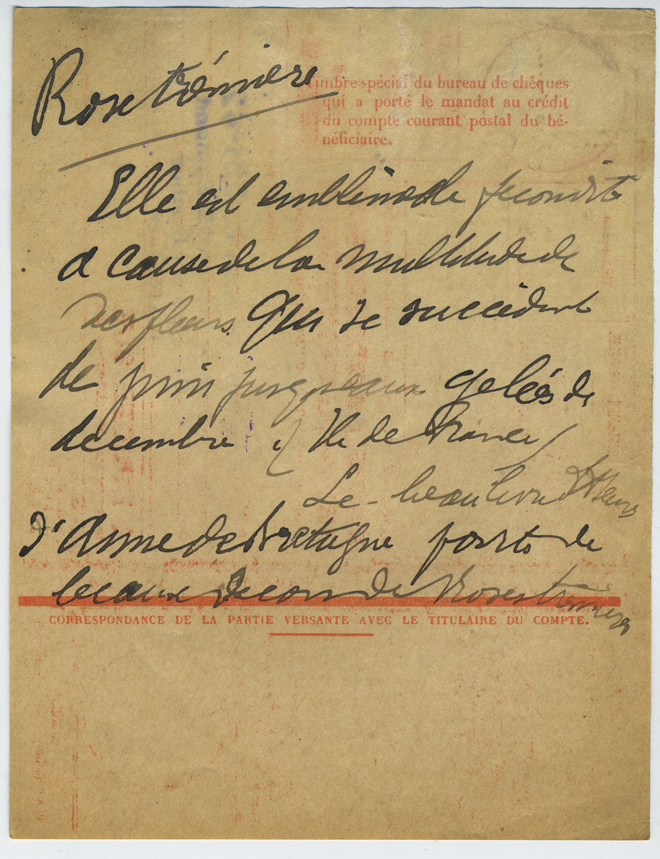 Rose trémière
timbre spécial du bureau de chèques
qui a porté le mandat au crédit
du compte courant postal du bé-
néficiaire.
Elle est emblème de fécondité
a cause de la multitude de
ses fleurs qui se succèdent
de juin jusqu'aux gelées de
decembre. (Ile de France)
Le beau livre d'Heures
d'Anne de Bretagne porte de
beaux decors de Roses trémières
CORRESPONDANCE DE LA PARTIE VERSANTE AVEC LE TITULAIRE DU COMPTE.